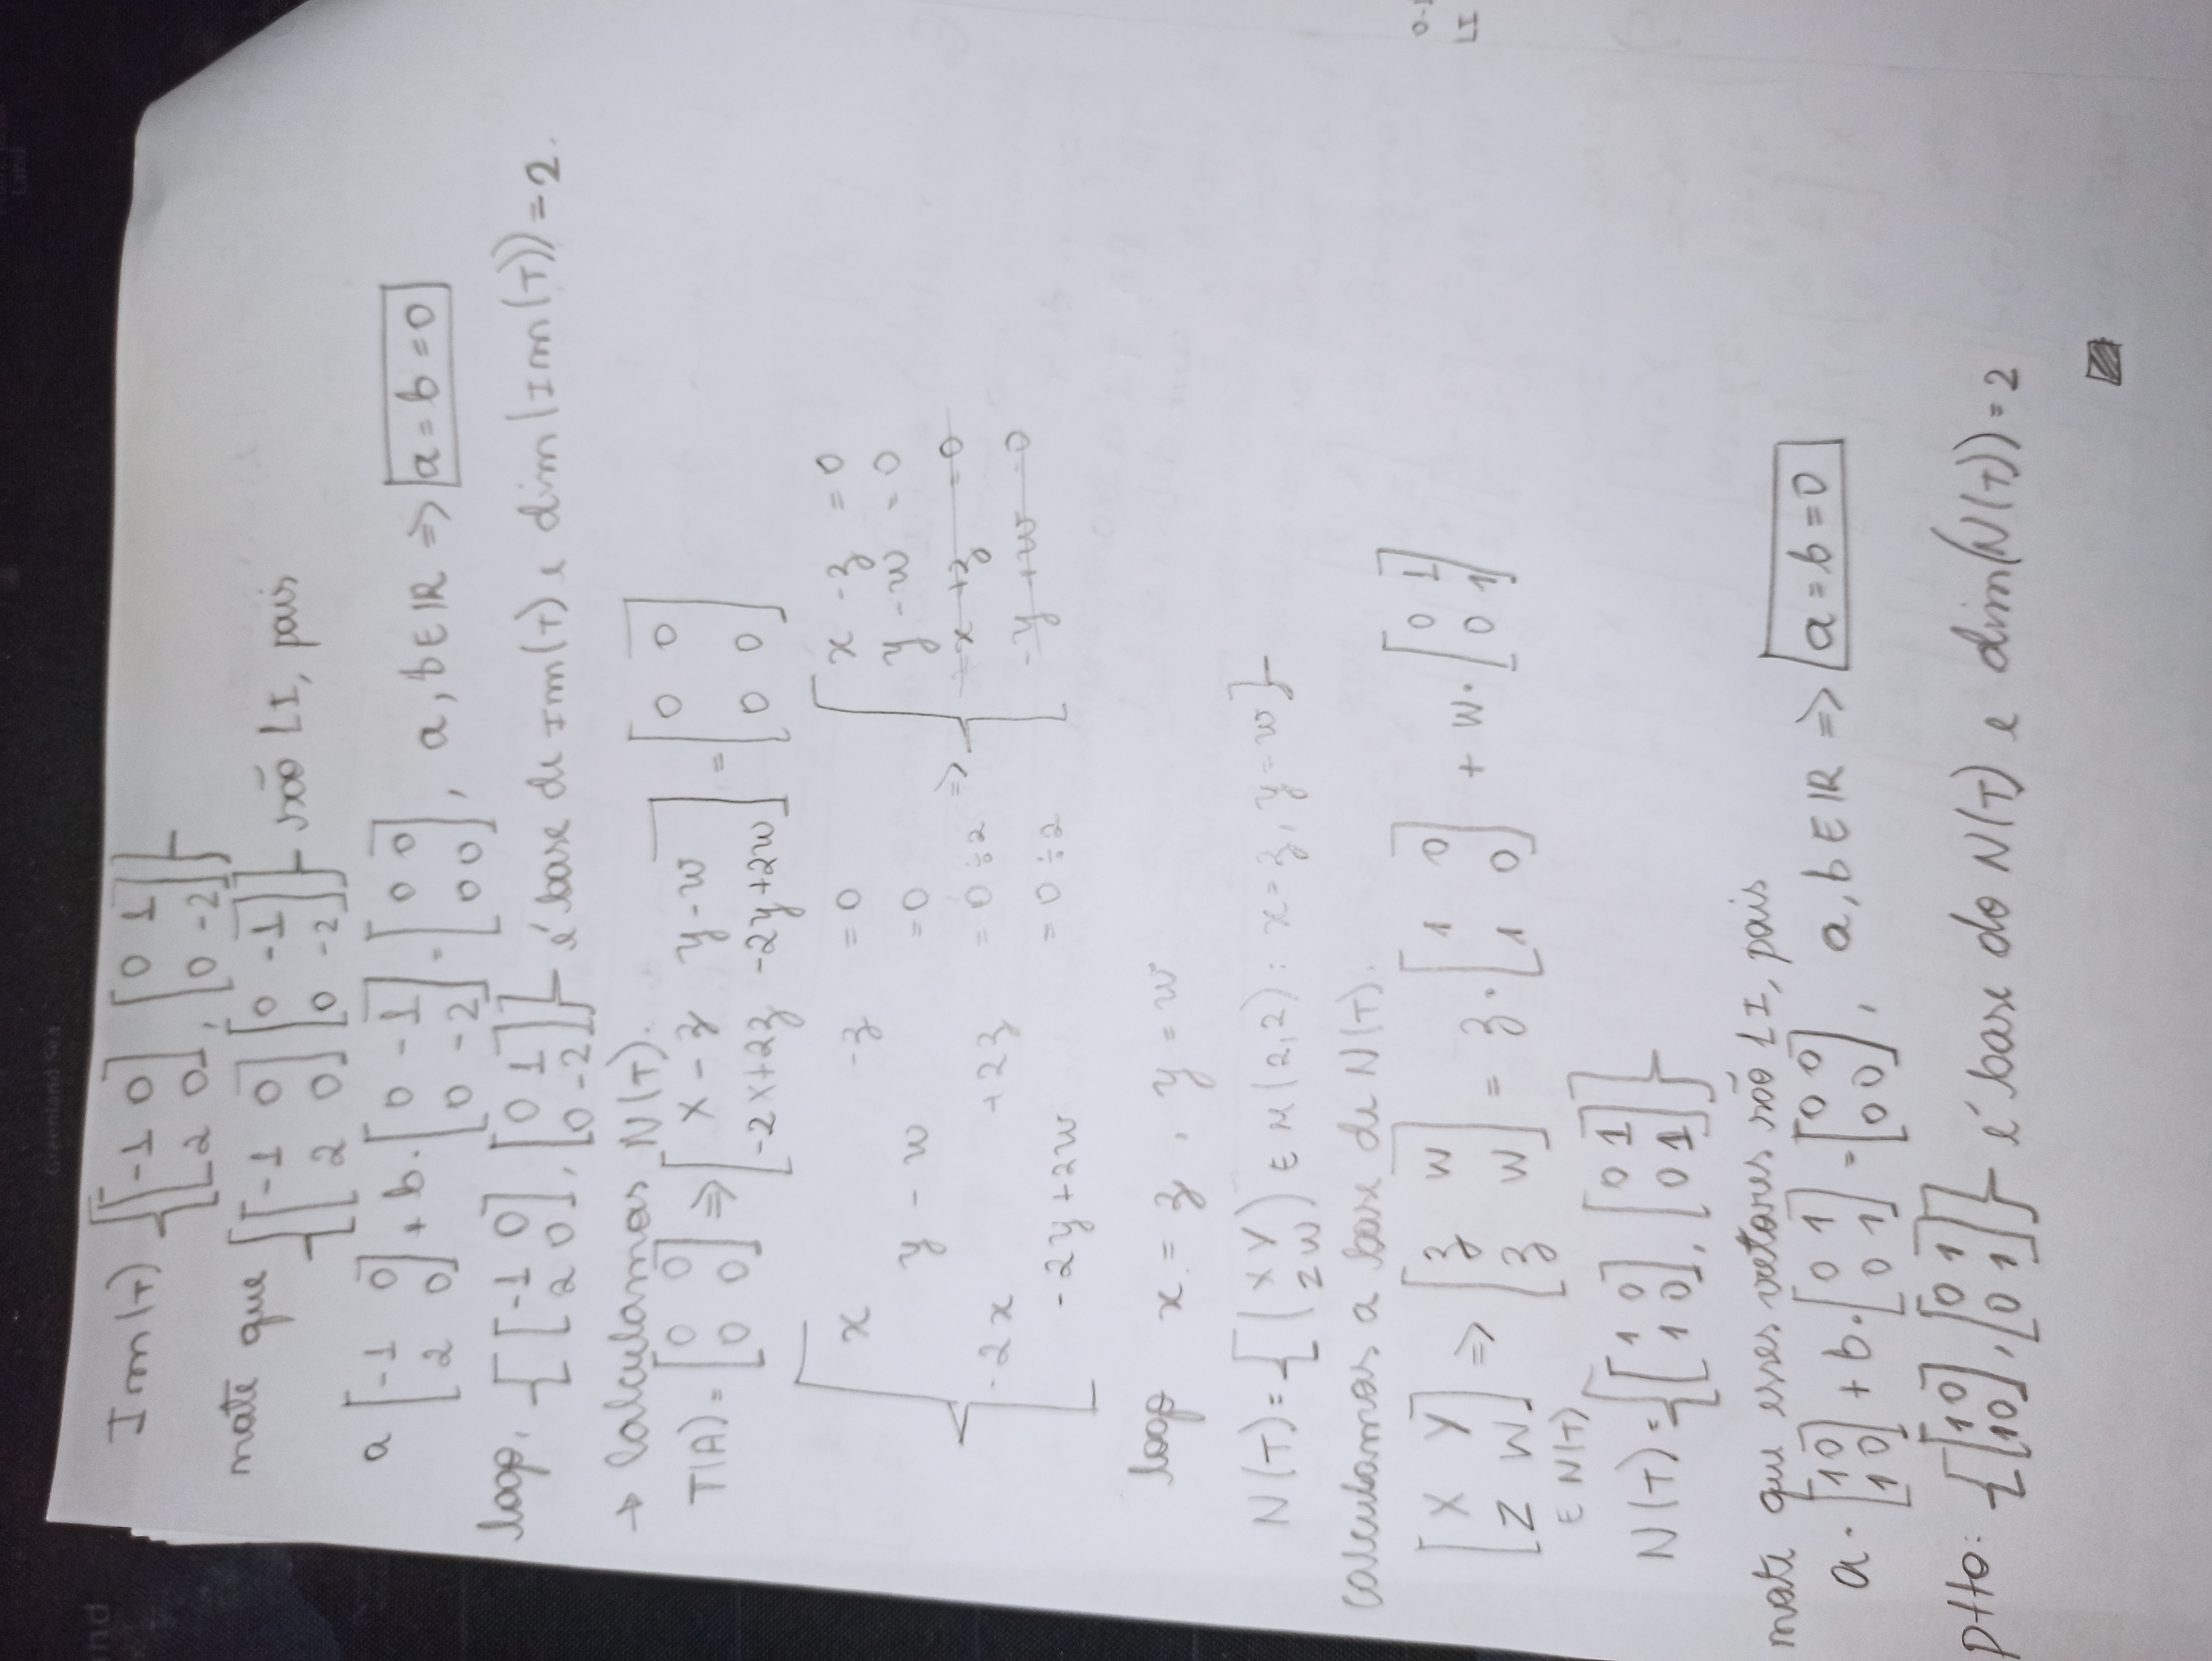 Greenland Sea
Land
nd
Im(T) {[-1 0; 2 0], [0 1; 0 -2]}
note que {[-1 0; 2 0] [0 -1; 0 -2]} são LI, pois
a [-1 0; 2 0] + b. [0 -1; 0 -2] = [0 0; 0 0], a, b ∈ IR => a = b = 0
logo, {[-1 0; 2 0], [0 1; 0 -2]} é base de Im(T) e dim(Im(T)) = 2.
→ Calculamos N(T).
T(A) = [0 0; 0 0] => [x - z y - w; -2x+2z -2y+2w] = [0 0; 0 0]
{ x -z = 0
y - w = 0
-2x +2z = 0 ÷2
-2y + 2w = 0 ÷2
=> { x - z = 0
y - w = 0
-x + z = 0
-y + w = 0
logo x = z, y = w
N(T) = {(x y; z w) ∈ M(2,2) : x = z, y = w}
Calculamos a base de N(T).
[x y; z w] => [z w; z w] = z. [1 0; 1 0] + w. [0 1; 0 1]
∈ N(T)
N(T) = {[1 0; 1 0], [0 1; 0 1]}
note que esses vetores são LI, pois
a. [1 0; 1 0] + b. [0 1; 0 1] = [0 0; 0 0], a, b ∈ IR => a = b = 0
ptto: {[1 0; 1 0], [0 1; 0 1]} é base do N(T) e dim(N(T)) = 2
LI